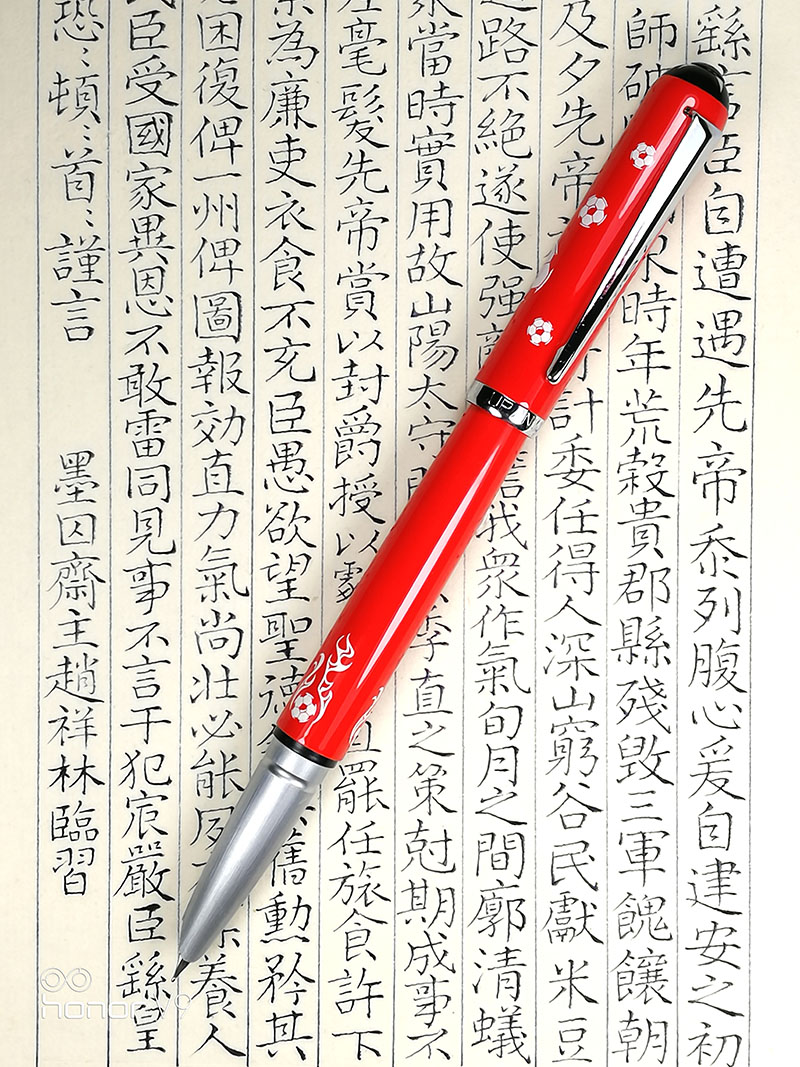 繇言臣自遭遇先帝忝列腹心爰自建安之初
師破時年荒穀貴郡縣殘毀三軍餽饟朝
及夕先帝計委任得人深山窮谷民獻米豆
路不絕遂使强我衆作氣旬月之間廓清蟻
當時實用故山陽太守季直之策尅期成事不
毫髮先帝賞以封爵授以劇直罷任旅食許下
為廉吏衣食不充臣愚欲望聖德舊勳矜其
困復俾一州俾圖報効直力氣尚壯必能夙養人
民臣受國家異恩不敢雷同見事不言干犯宸嚴臣繇皇
恐:頓:首:謹言 墨囚齋主趙祥林臨習
honor 9